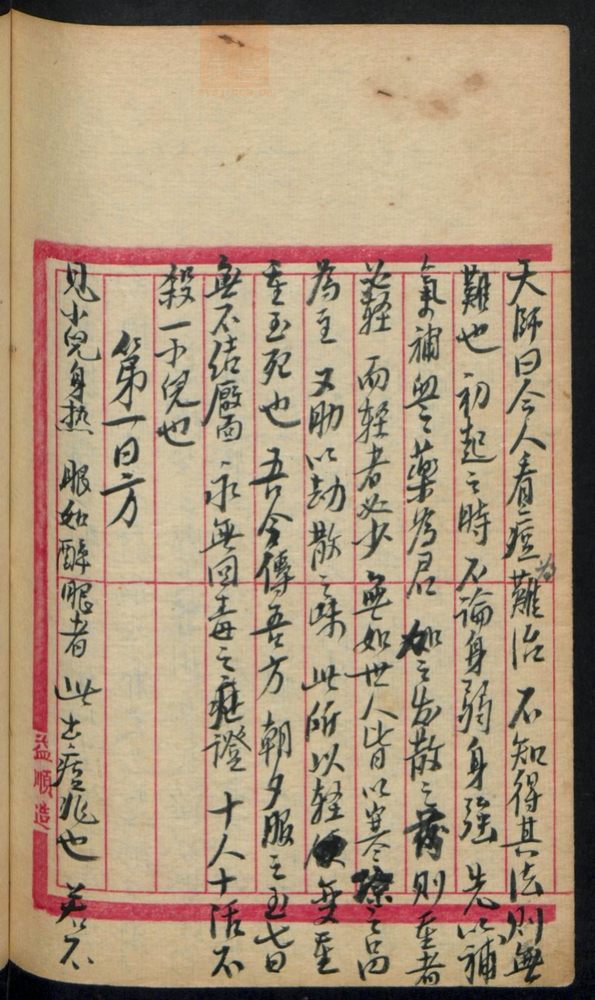 天師曰今人看痘為難治 不知得其法則無
難也 初起之時 不論身弱身強 先以補
氣補血之藥為君 加之发散之药則重者
必輕 而輕者必少 無如世人皆以寒涼之品
為主 又助以劫散之味 此所以輕變重
重至死也 吾今傳吾方 朝夕服之至七日
無不结靨而 永無回毒之症證 十人十活不
殺一小兒也
第一日方
見小兒身热 眼如醉眼者 此出痘兆也 若不
益順造